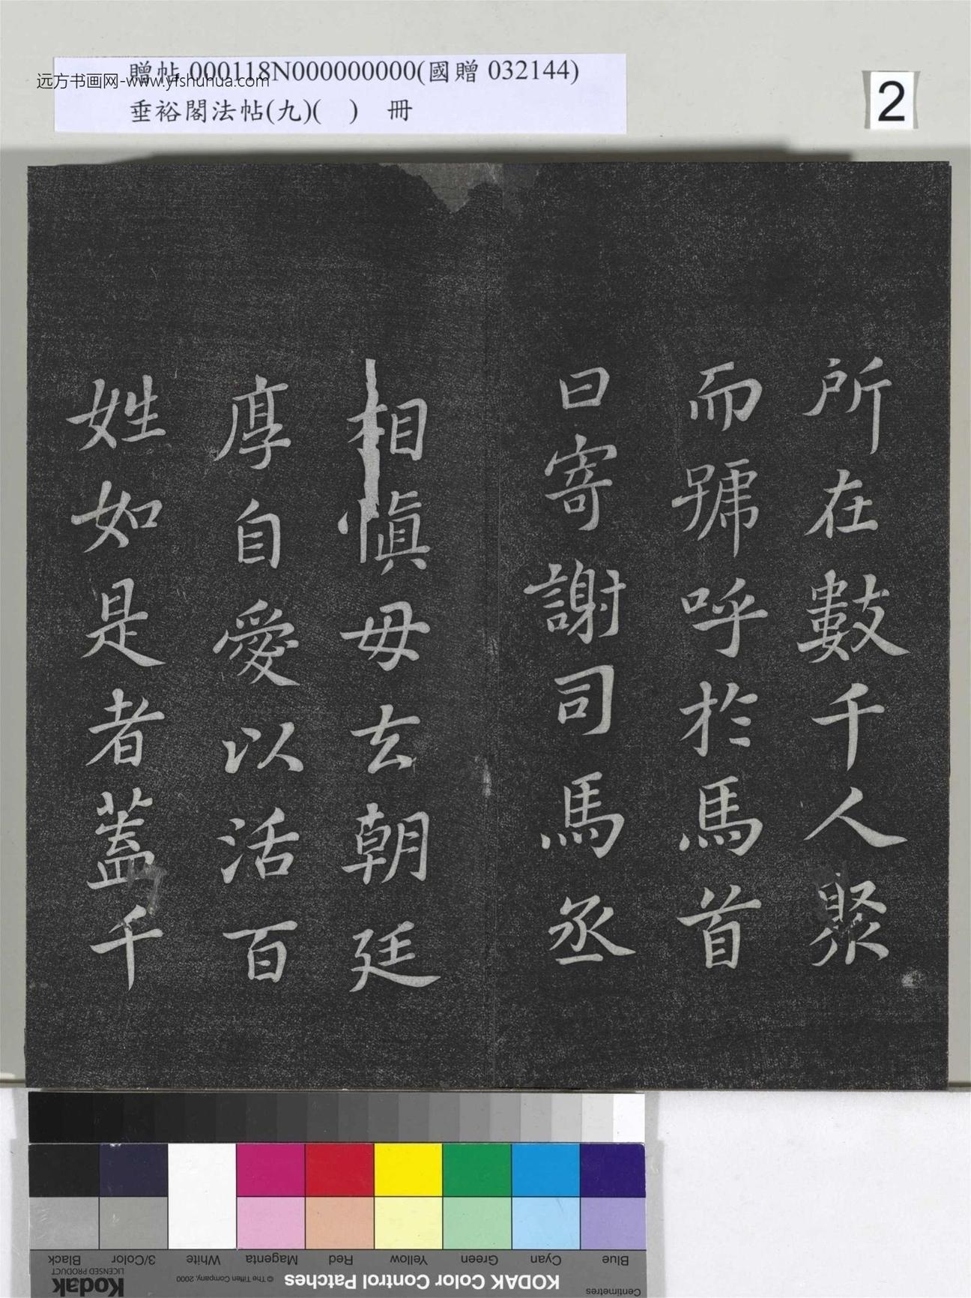 贈帖 000118N000000000(國贈 032144)
远方书画网-www.yfshuhua.com
垂裕閣法帖(九)( ) 冊
2
所在數千人聚
而號呼於馬首
曰寄謝司馬丞
相慎毋去朝廷
厚自愛以活百
姓如是者蓋千
Blue Cyan Green Yellow Red Magenta White 3/Color Black
Centimetres
KODAK Color Control Patches
© The Tiffen Company, 2000
Kodak
LICENSED PRODUCT